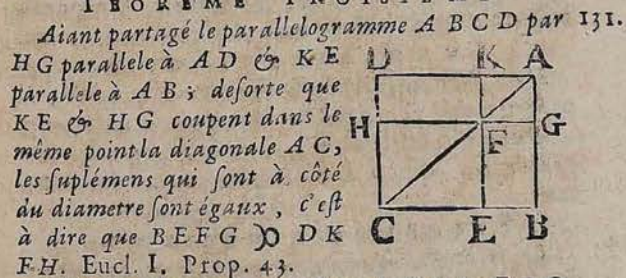 Aiant partagé le parallelogramme A B C D par 131.
HG parallele à AD & KE
parallele à AB; desorte que
KE & HG coupent dans le
même point la diagonale AC,
les suplémens qui sont à côté
du diametre sont égaux, c'est
à dire que BEFG ꝏ DK
FH. Eucl. I. Prop. 43.
D K A
H F G
C E B